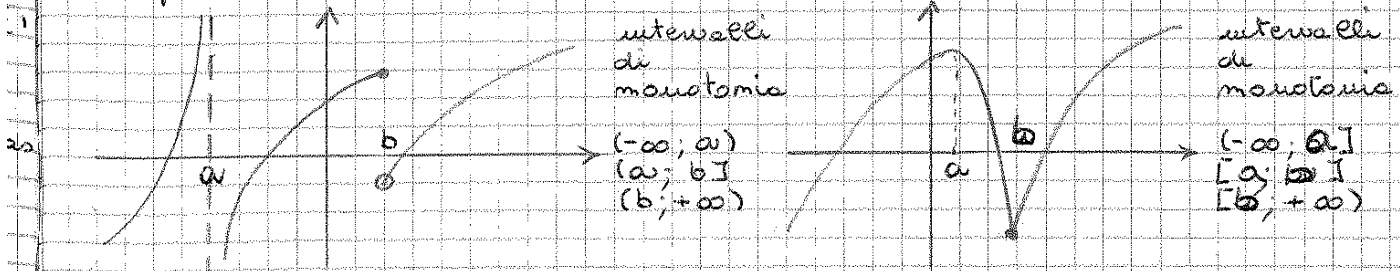 intervalli
di
monotonia
(-∞; a)
(a; b]
(b; +∞)
a
b
intervalli
di
monotonia
(-∞; a]
[a; b]
[b; +∞)
a
b